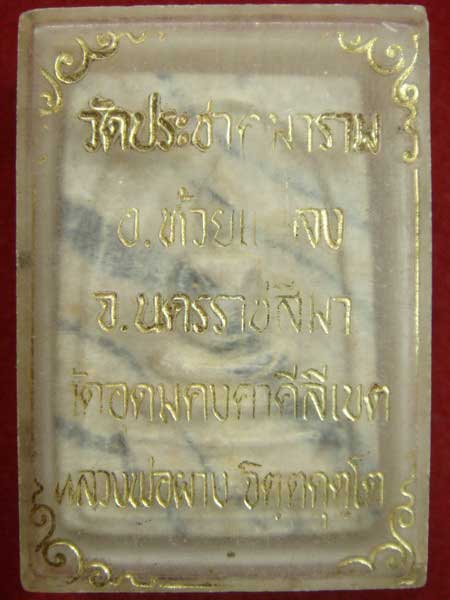 วัดประชาคมาราม
อ.ห้วยแถลง
จ.นครราชสีมา
วัดอุดมคงคาคีรีเขต
หลวงพ่อผาง จิตฺตคุตฺโต